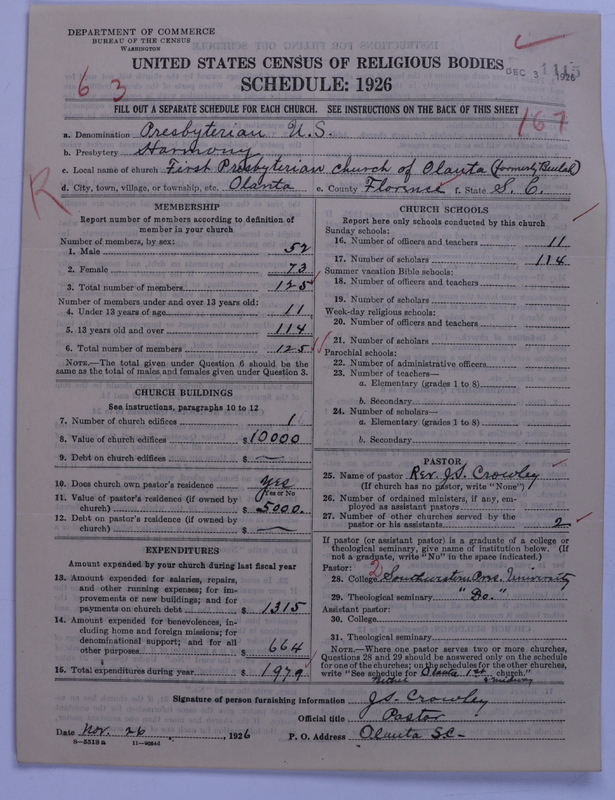 DEPARTMENT OF COMMERCE
BUREAU OF THE CENSUS
WASHINGTON
UNITED STATES CENSUS OF RELIGIOUS BODIES
DEC 3 1926
1115
SCHEDULE: 1926
63
FILL OUT A SEPARATE SCHEDULE FOR EACH CHURCH. SEE INSTRUCTIONS ON THE BACK OF THIS SHEET
167
a. Denomination Presbyterian U.S.
b. Presbytery Harmony
c. Local name of church First Presbyterian church of Olanta (formerly Beulah)
d. City, town, village, or township, etc. Olanta e. County Florence f. State S. C.
R
MEMBERSHIP
Report number of members according to definition of member in your church
Number of members, by sex:
1. Male 52
2. Female 73
3. Total number of members 125
Number of members under and over 13 years old:
4. Under 13 years of age 11
5. 13 years old and over 114
6. Total number of members 125
NOTE.—The total given under Question 6 should be same as the total of males and females given under Question 3.
CHURCH BUILDINGS
See instructions, paragraphs 10 to 12
7. Number of church edifices 1
8. Value of church edifices $10000
9. Debt on church edifices $ —
10. Does church own pastor's residence yes
Yes or No
11. Value of pastor's residence (if owned by church) $5000.
12. Debt on pastor's residence (if owned by church) $ —
EXPENDITURES
Amount expended by your church during last fiscal year
13. Amount expended for salaries, repairs, and other running expenses; for improvements or new buildings; and for payments on church debt $1315
14. Amount expended for benevolences, including home and foreign missions; for denominational support; and for all other purposes $664
15. Total expenditures during year $1979
CHURCH SCHOOLS
Report here only schools conducted by this church
Sunday schools:
16. Number of officers and teachers 11
17. Number of scholars 114
Summer vacation Bible schools:
18. Number of officers and teachers
19. Number of scholars
Week-day religious schools:
20. Number of officers and teachers
21. Number of scholars
Parochial schools:
22. Number of administrative officers
23. Number of teachers—
a. Elementary (grades 1 to 8)
b. Secondary
24. Number of scholars—
a. Elementary (grades 1 to 8)
b. Secondary
PASTOR
25. Name of pastor Rev. J.S. Crowley
(If church has no pastor, write "None")
26. Number of ordained ministers, if any, employed as assistant pastors
27. Number of other churches served by the pastor or his assistants 2
If pastor (or assistant pastor) is a graduate of a college or theological seminary, give name of institution below. (If not a graduate, write "No" in the space indicated.)
Pastor: 2
28. College Southwestern Pres. University
29. Theological seminary "Do."
Assistant pastor:
30. College
31. Theological seminary
NOTE.—Where one pastor serves two or more churches, Questions 28 and 29 should be answered only on the schedule for one of the churches; on the schedules for the other churches, write "See schedule for Olanta 1st church."
Signature of person furnishing information J.S. Crowley
Official title Pastor
Date Nov. 26, 1926 P. O. Address Olanta S.C.
8—5518 a